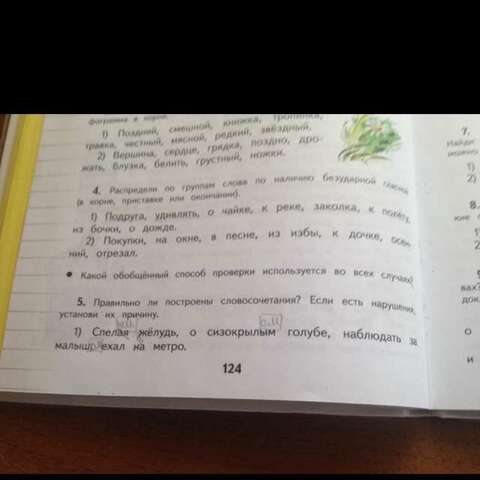 фограмма в корне.
1) Поздний, смешной, книжка, тропинка,
травка, честный, мясной, редкий, звёздный.
2) Вершина, сердце, грядка, поздно, дро-
жать, блузка, белить, грустный, ножки.
4. Распредели по группам слова по наличию безударной гласной
(в корне, приставке или окончании).
1) Подруга, удивлять, о чайке, к реке, заколка, к полёту,
из бочки, о дожде.
2) Покупки, на окне, в песне, из избы, к дочке, осен-
ний, отрезал.
• Какой обобщённый способ проверки используется во всех случаях?
5. Правильно ли построены словосочетания? Если есть нарушения,
установи их причину.
1) Спелая жёлудь, о сизокрылым голубе, наблюдать за
малыш, ехал на метро.
124
7.
Найди
1)
2)
8.
1)
2
вах?
док
о
и